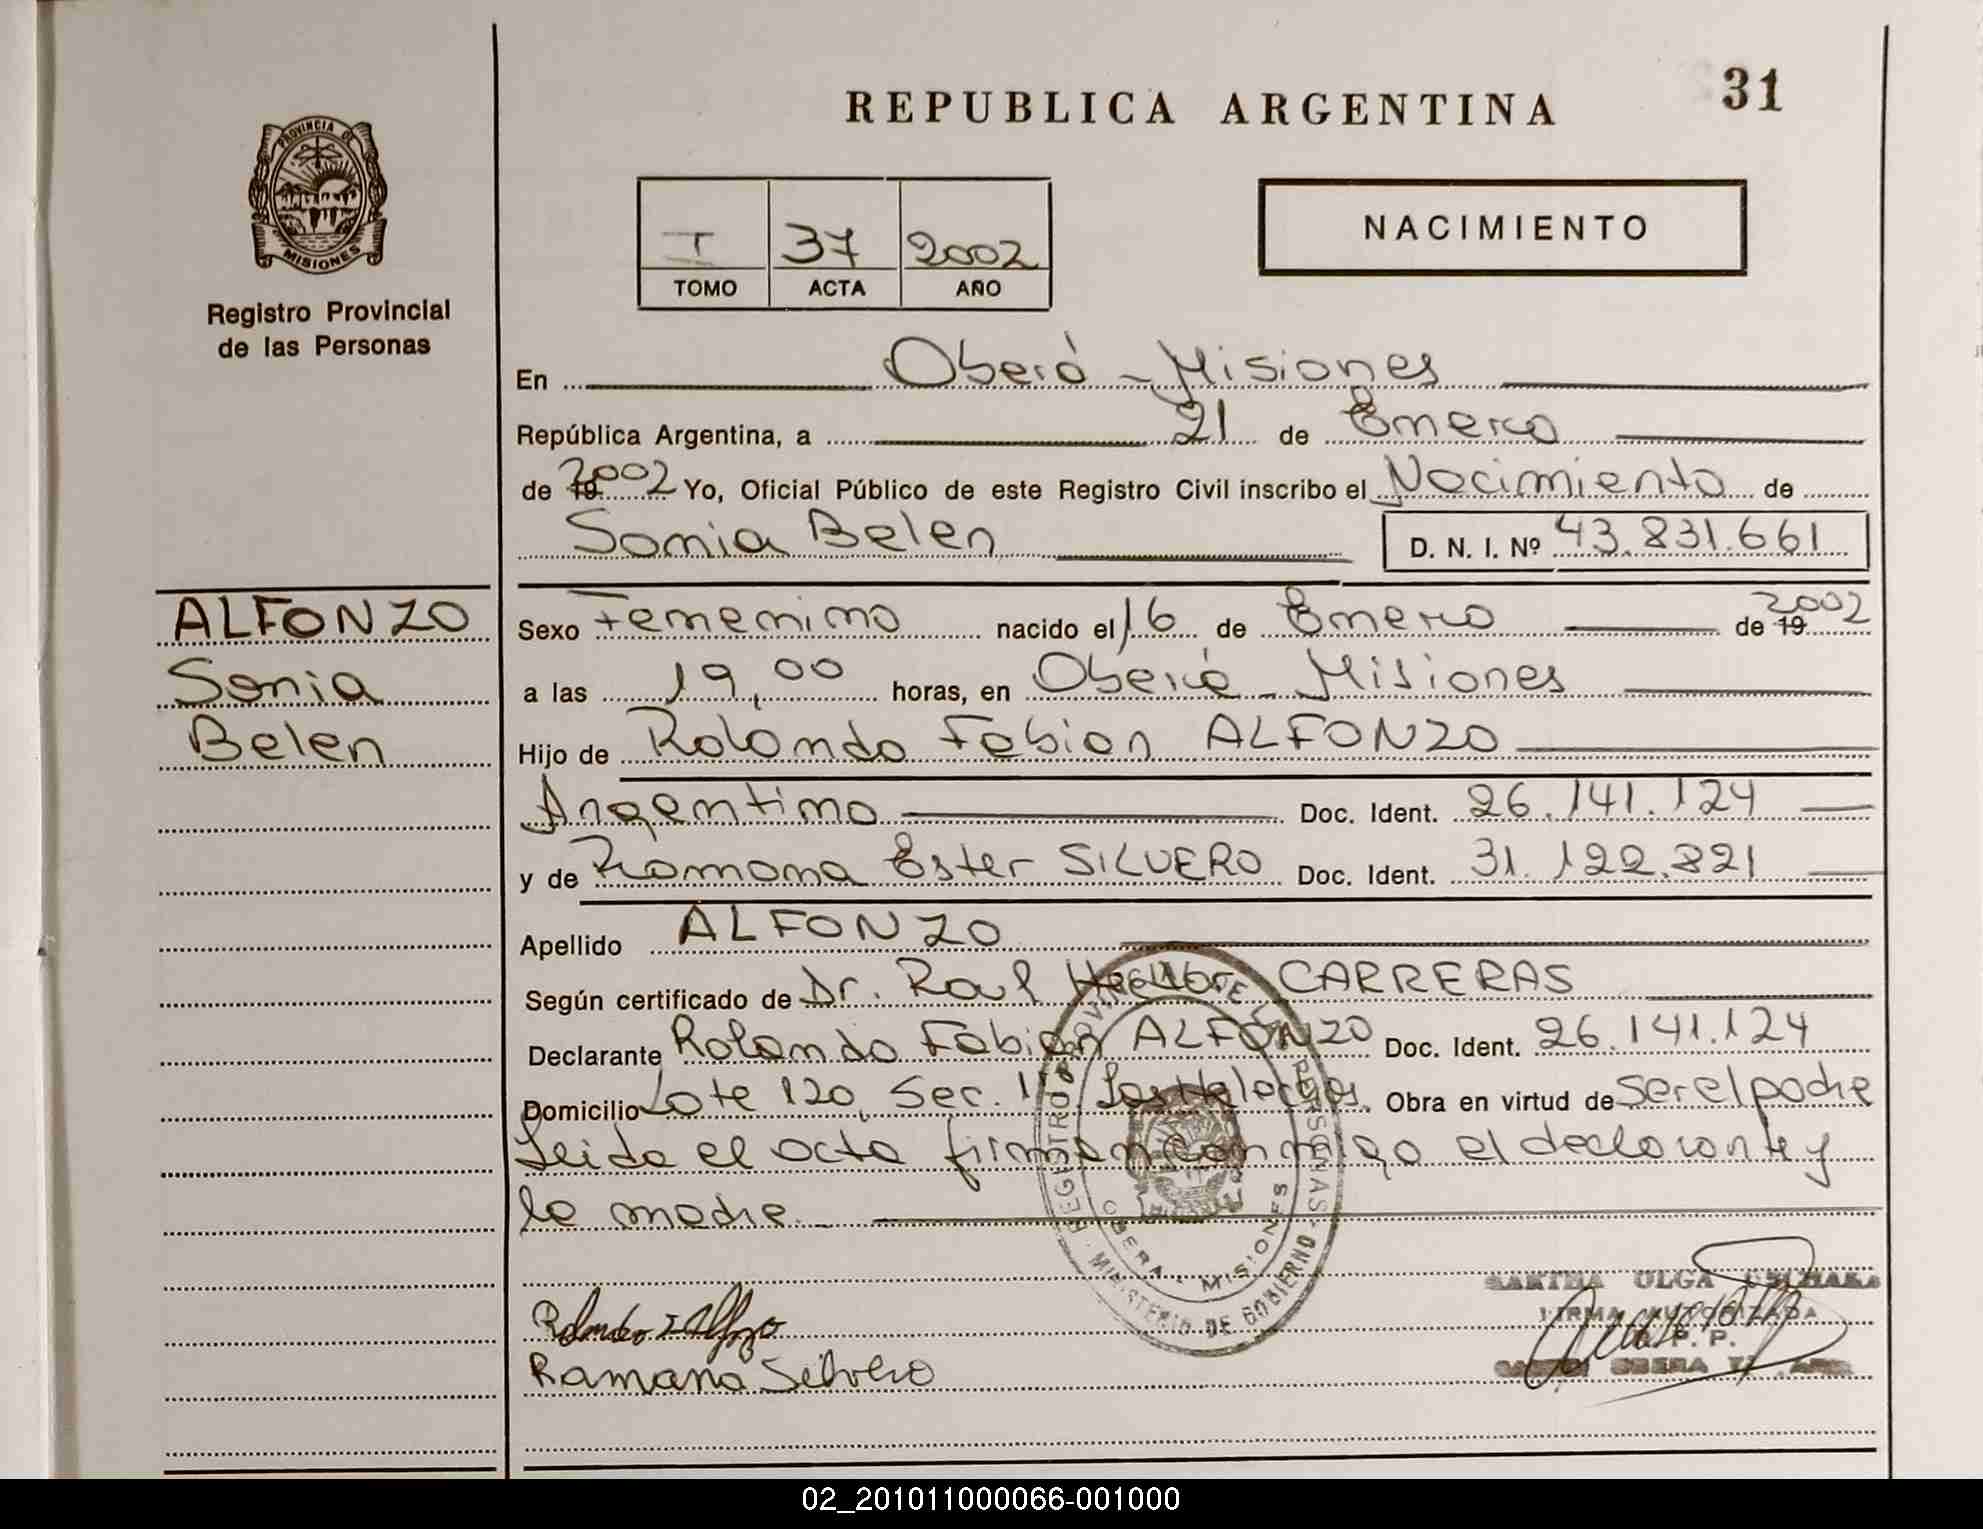 REPUBLICA ARGENTINA
31
PROVINCIA DE
MISIONES
Registro Provincial
de las Personas
I 37 2002
TOMO ACTA AÑO
NACIMIENTO
En Oberá - Misiones
República Argentina, a 21 de Enero
de 19 2002 Yo, Oficial Público de este Registro Civil inscribo el Nacimiento de
Sonia Belen D. N. I. Nº 43.831.661
ALFONZO
Sonia
Belen
Sexo Femenino nacido el 16 de Enero de 19 2002
a las 19,00 horas, en Oberá - Misiones
Hijo de Rolando Fabian ALFONZO
Argentino Doc. Ident. 26.141.124
y de Ramona Ester SILVERO Doc. Ident. 31.122.821
Apellido ALFONZO
Según certificado de Dr. Raul CARRERAS
Declarante Rolando Fabian ALFONZO Doc. Ident. 26.141.124
Domicilio Lote 120, Sec. Obra en virtud de ser el padre
Leida el acta firman conmigo el declarante y
la madre.
REGISTRO PROVINCIAL DE LAS PERSONAS
MINISTERIO DE GOBIERNO
OBERA - MISIONES
OLGA
FIRMA AUTORIZADA
R. P. P.
Rolando F Alfonzo
Ramona Silvero
02_201011000066-001000